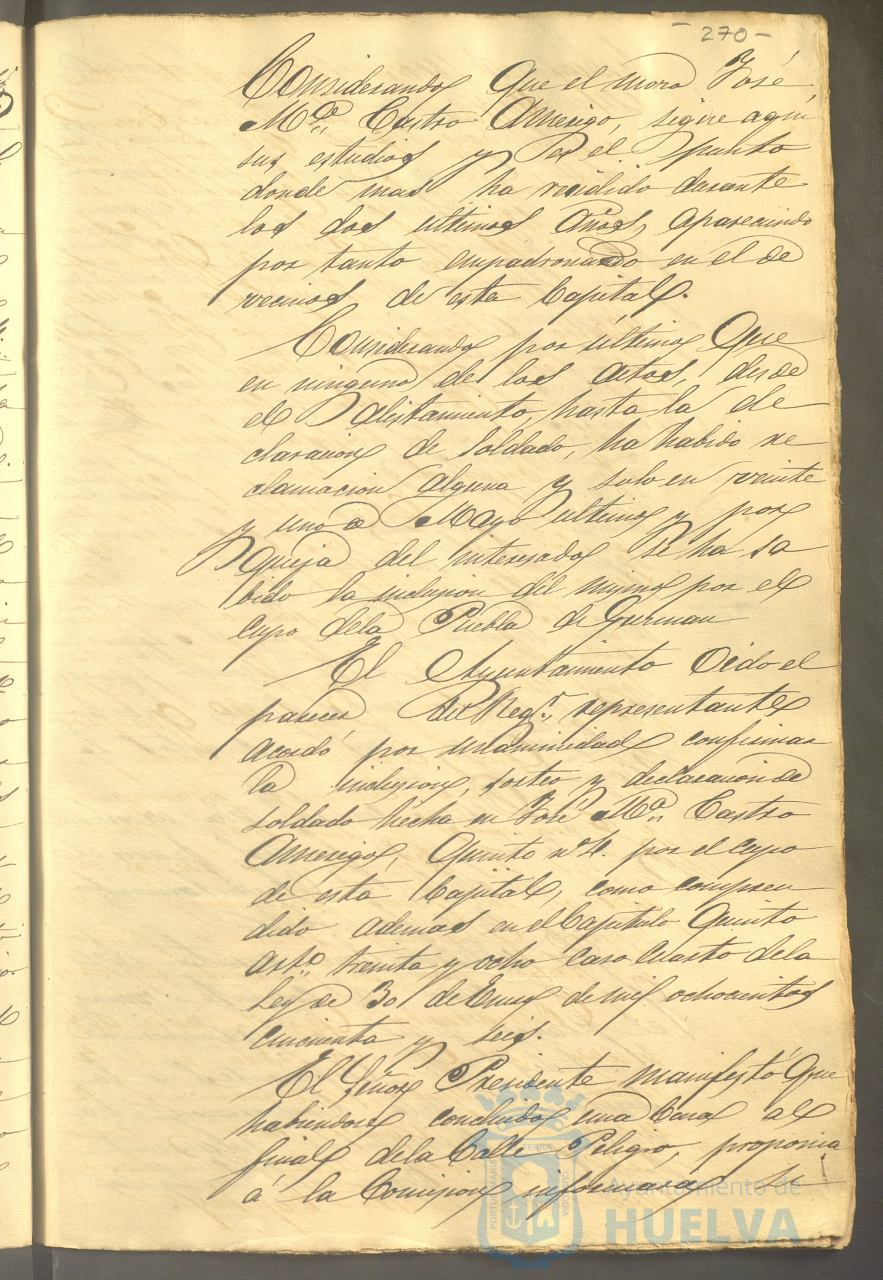 - 270 -
Considerando que el moro José
Mª. Castro Amerigo, sigue aqui
sus estudios y es el punto
donde mas ha recidido durante
los dos ultimos años, apareciendo
por tanto empadronado en el de
vecinos de esta Capital.
Considerando por último que
en ninguno de los actos, desde
el alistamiento, hasta la de
claracion de soldado, ha habido re
clamacion alguna y solo en veinte
y uno de Mayo ultimo y por
queja del interesado se ha sa
bido la inclusion del mismo por el
cupo de la Puebla de Guzman
El Ayuntamiento Oido el
parecer del Regr. representante
acordó por unanimidad confirmar
la inclusion, sorteo y declaracion de
soldado hecha en José Mª. Castro
Amerigo, Quinto nº 4. por el cupo
de esta Capital, como compren
dido ademas en el Capitulo Quinto
arto. treinta y ocho caso cuarto de la
Ley de 30 de Enero de mil ochocientos
cincuenta y seis.
El Señor Presidente manifestó que
habiendose concluido una Casa al
final de la Calle Peligro, proponia
á la Comision informara si
Ayuntamiento de
HUELVA